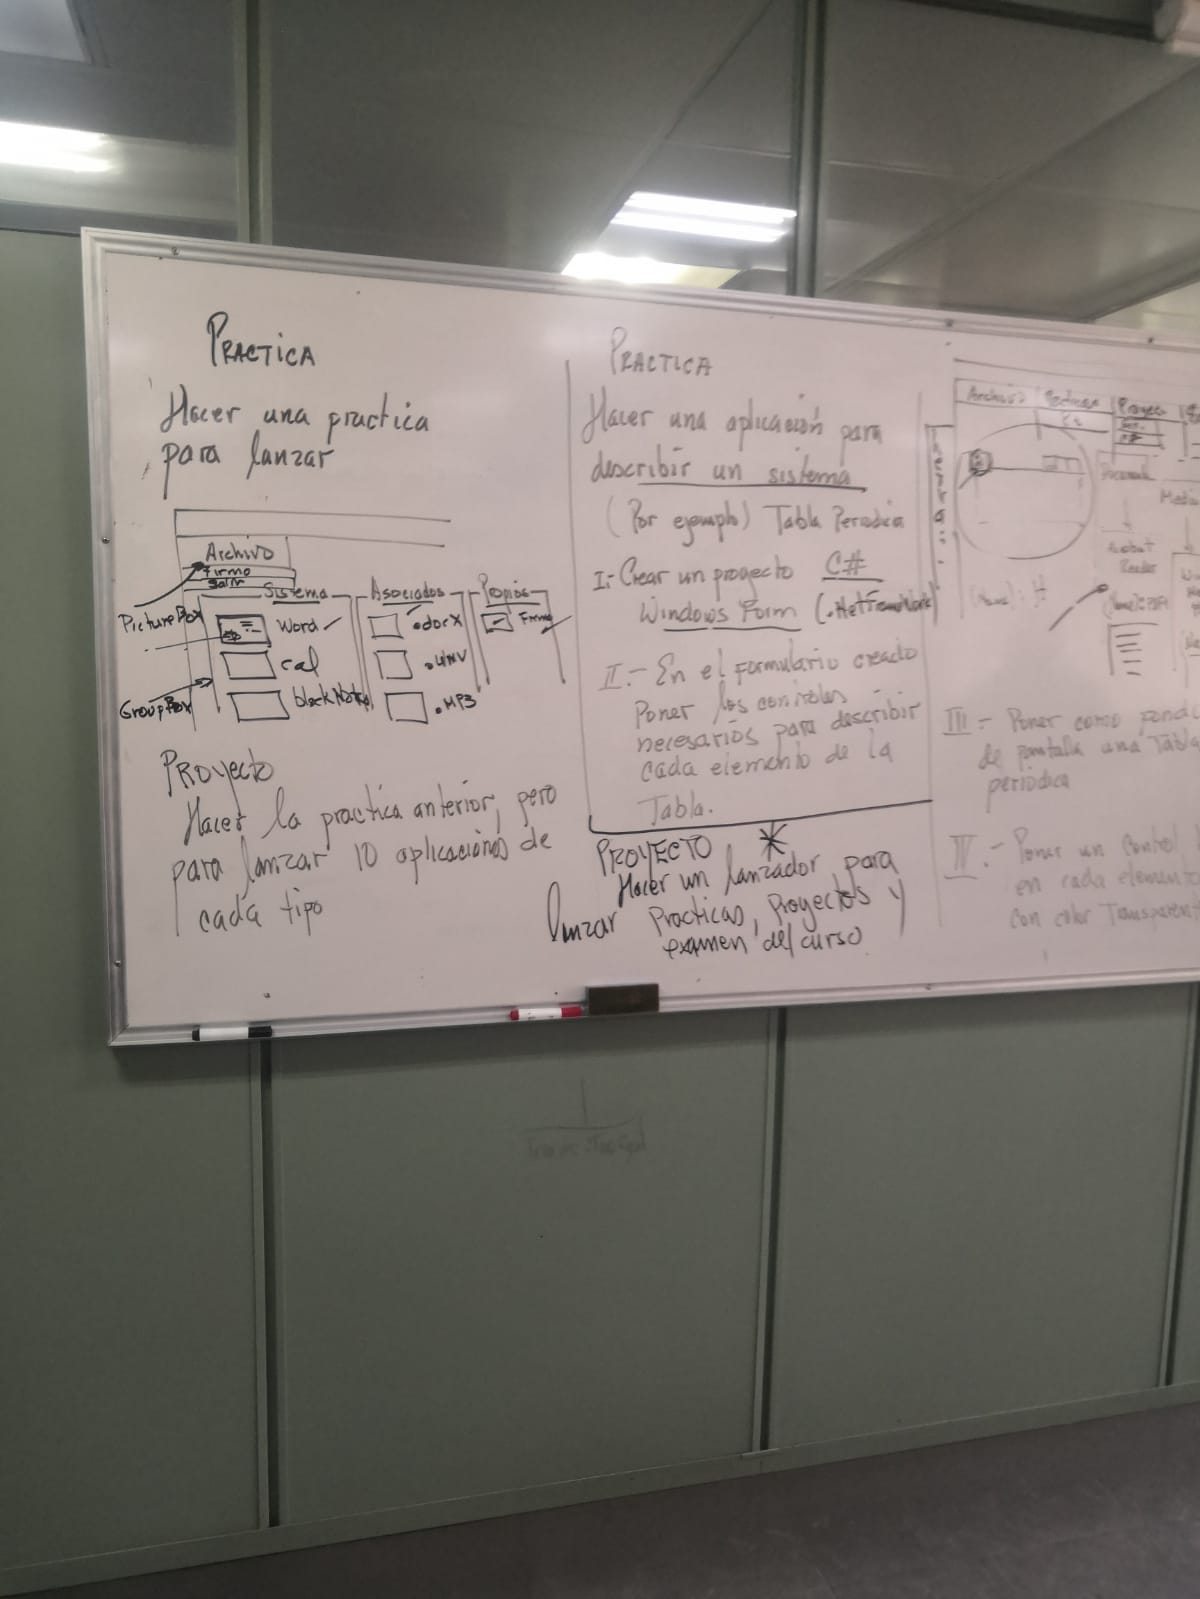 PRACTICA
Hacer una practica
para lanzar
Archivo
Firmo
Salir
Sistema
Asociados
Propios
PictureBox
Word
.docx
Firmo
cal
GroupBox
.MP3
PROYECTO
Hacer la practica anterior, pero
para lanzar 10 aplicaciones de
cada tipo
PRACTICA
Hacer una aplicación para
describir un sistema
(Por ejemplo) Tabla Periodica
I.- Crear un proyecto C#
Windows Form (.NetFramework)
II.- En el formulario creado
Poner los controles
necesarios para describir
cada elemento de la
Tabla.
PROYECTO *
Hacer un lanzador para
lanzar Practicas, Proyectos y
examen del curso
Archivo
Proyec
III.- Poner como fondo
de pantalla una Tabla
periodica
IV.- Poner un control
en cada elemento
con color Transparent